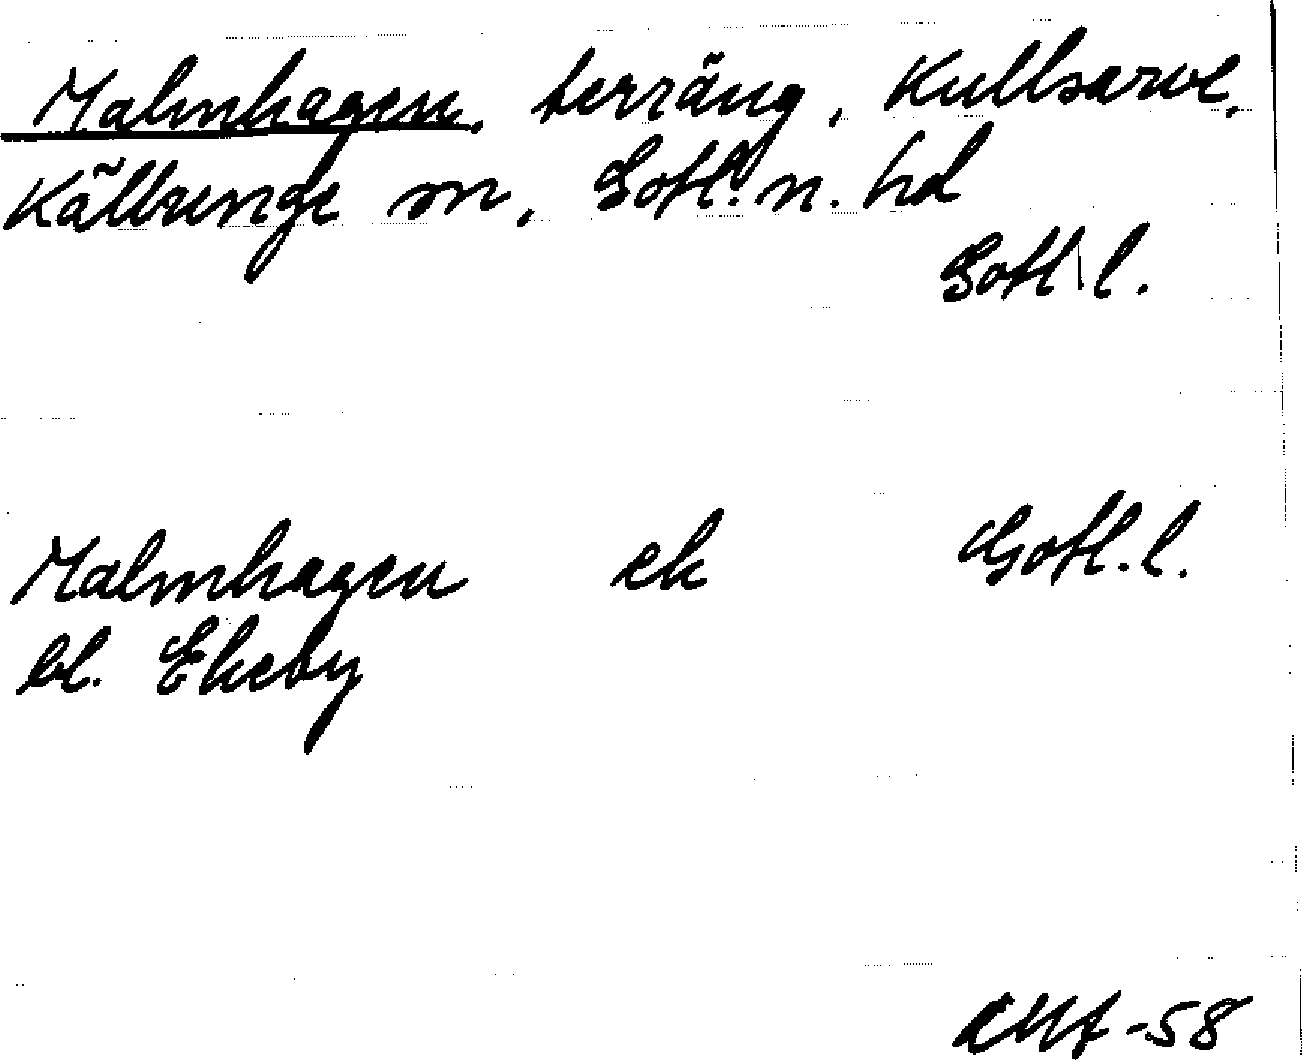 Malmhagen, terräng, Kullsarve,
Källunge sn, Gotl. n. hd
Gotl. l.
Malmhagen ek Gotl. l.
bl. Ekeby
-58